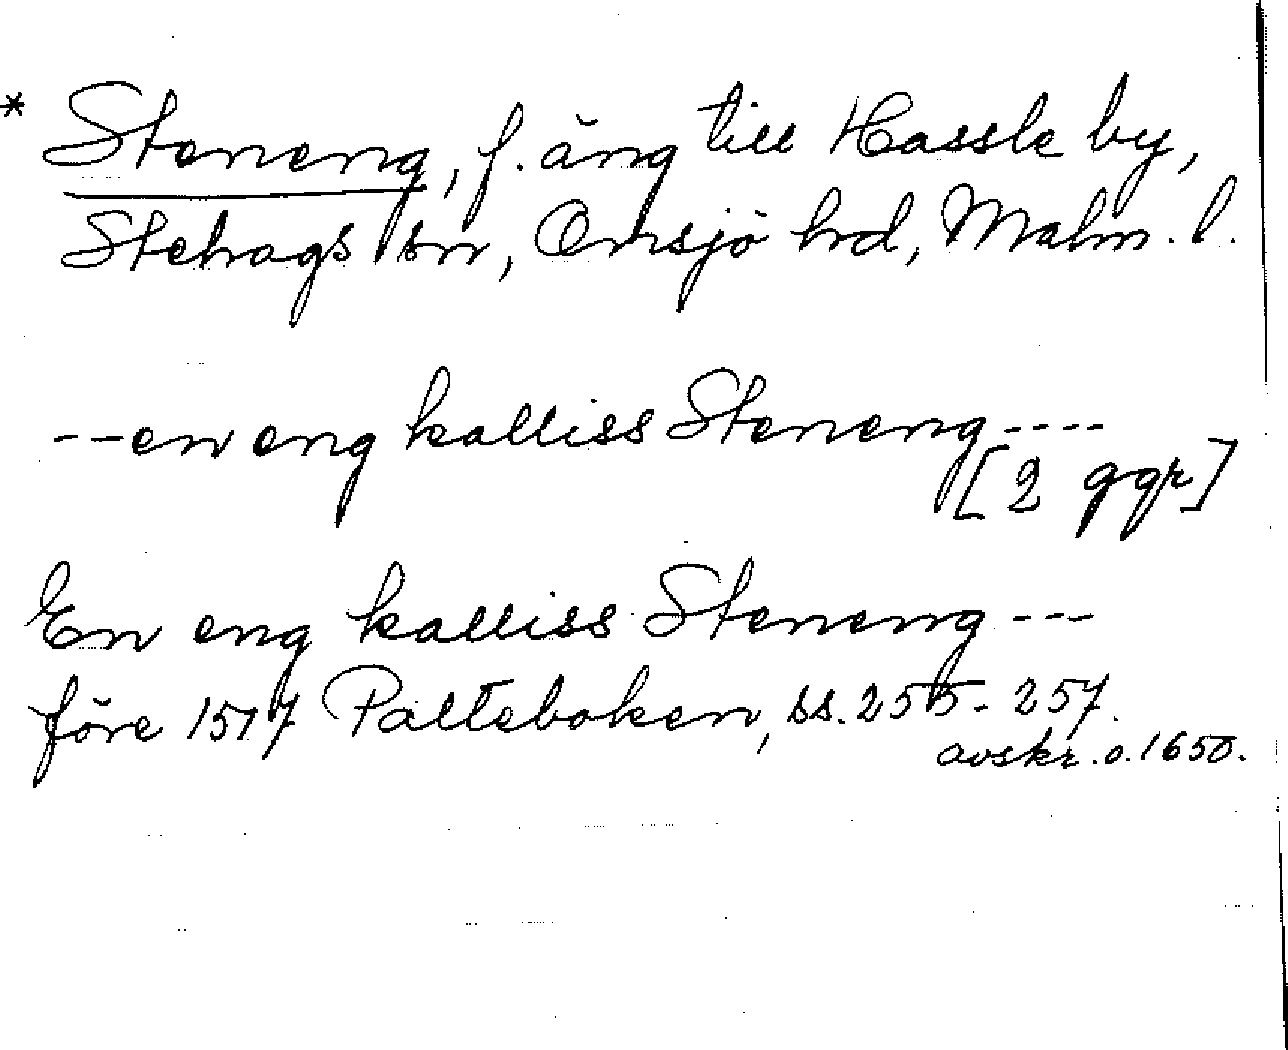 * Steneng, f. äng till Hassle by,
Stehags sn, Onsjö hd, Malm. l.
--en eng kalliss Steneng----
[2 ggr]
En eng kalliss Steneng---
före 1517 Palteboken, ss. 255-257.
avskr. o. 1650.